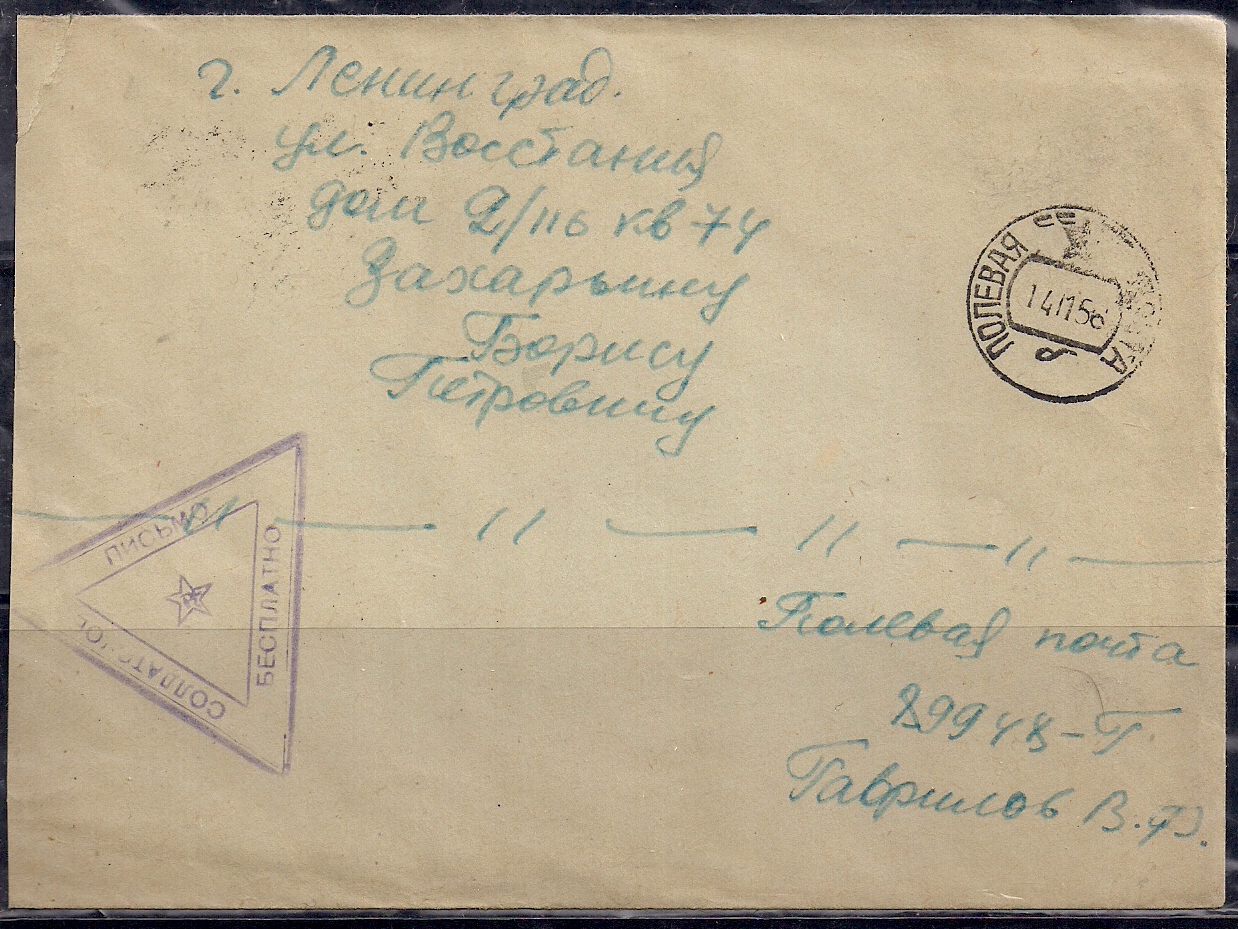 г. Ленинград.
ул. Восстания
дом 2/116 кв 74
Захарьину
Борису
Петровичу
ПОЛЕВАЯ
14 11 56
б
ПИСЬМО
СОЛДАТСКОЕ
БЕСПЛАТНО
— 11 — 11 — 11 — 11 —
Полевая почта
89948-Г
Гаврилов В.Ф.